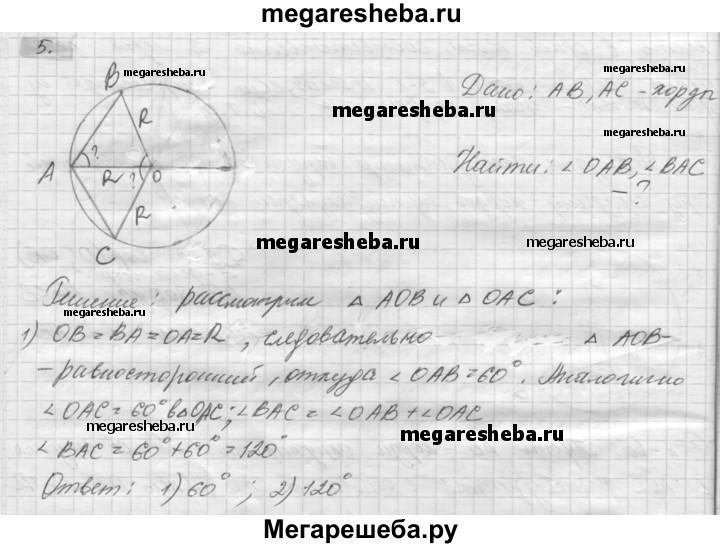 megaresheba.ru
5.
megaresheba.ru
B
R
Дано: AB, AC - хорды
megaresheba.ru
megaresheba.ru
A
?
R
?
O
Найти: ∠OAB, ∠BAC
- ?
R
C
megaresheba.ru
megaresheba.ru
Решение: рассмотрим △ AOB и △ OAC :
megaresheba.ru
1) OB = BA = OA = R, следовательно △ AOB-
megaresheba.ru
- равносторонний, откуда ∠ OAB = 60°. Аналогично
∠ OAC = 60° в △ OAC; ∠ BAC = ∠ OAB + ∠ OAC
megaresheba.ru
megaresheba.ru
∠ BAC = 60° + 60° = 120°
Ответ: 1) 60° ; 2) 120°
Мегарешеба.ру